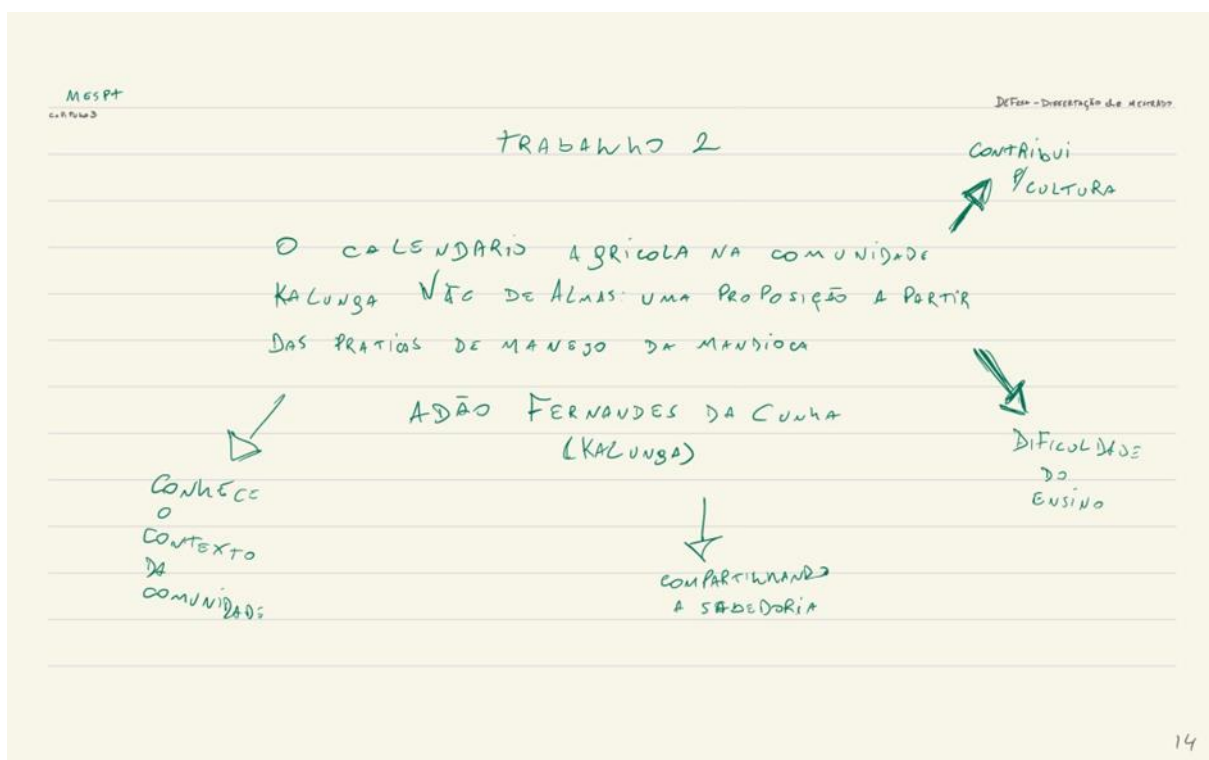 MESPT
CAPITULO 3
DEFESA - DISSERTAÇÃO de MESTRADO
TRABALHO 2
CONTRIBUI
P/ CULTURA
O CALENDARIO AGRÍCOLA NA COMUNIDADE
KALUNGA VÃO DE ALMAS: UMA PROPOSIÇÃO A PARTIR
DAS PRATICAS DE MANEJO DA MANDIOCA
ADÃO FERNANDES DA CUNHA
(KALUNGA)
DIFICULDADE
DO
ENSINO
CONHECE
O
CONTEXTO
DA
COMUNIDADE
COMPARTILHANDO
A SABEDORIA
14